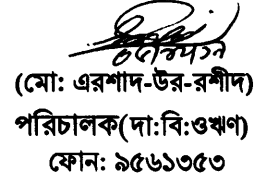 (মো: এরশাদ-উর-রশীদ)
পরিচালক(দা:বি:ওঋণ)
ফোন: ৯৫৬১৩৫৩